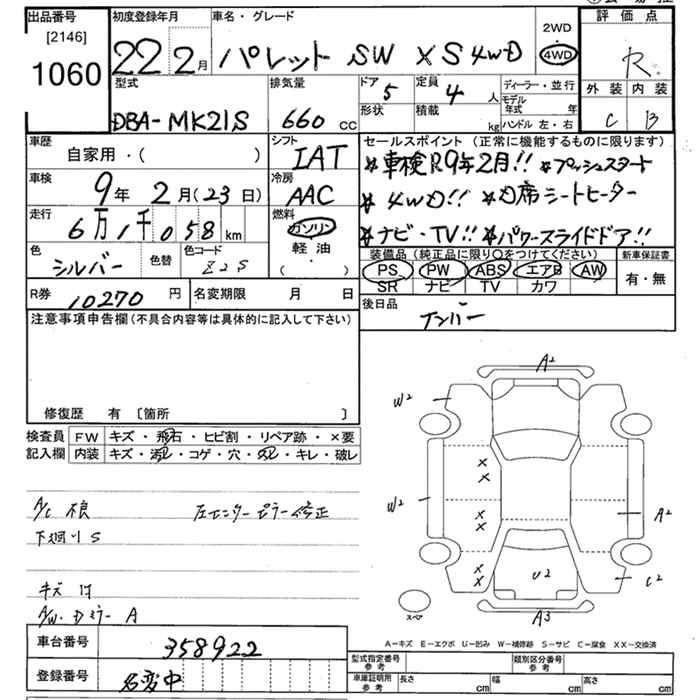 出品番号
[2146]
1060
初度登録年月
22 2月
車名・グレード
パレット SW XS 4WD
2WD
・
4WD
評価点
R
外装 内装
C B
型式
DBA-MK21S
排気量
660 cc
ドア 5
定員 4 人
形状
積載 kg
ディーラー・並行
モデル年式 年
ハンドル 左・右
車歴
自家用・( )
シフト
IAT
車検
9年 2月(23日)
冷房
AAC
走行
6万1千058km
燃料
ガソリン
軽油
・( )
色
シルバー
色替
色コード
Z2S
セールスポイント (正常に機能するものに限ります)
*車検R9年2月!! *プッシュスタート
*4WD!! *D席シートヒーター
*ナビ・TV!! *パワースライドドア!!
装備品(純正品に限り○をつけてください)
PS PW ABS エアB AW
SR ナビ TV カワ
新車保証書
有・無
R券 10270 円
名変期限 月 日
後日品
ナンバー
注意事項申告欄(不具合内容等は具体的に記入して下さい)
修復歴 有 〔箇所 〕
検査員
記入欄
FW キズ・飛石・ヒビ割・リペア跡・×要
内装 キズ・汚レ・コゲ・穴・スレ・キレ・破レ
A/C 不良 左センターピラー修正
下廻りS
キズ 凹
A/W・Dミラー A
車台番号 358922
登録番号 名変中
A2
W2
W2
A2
U2
C2
A3
×
×
×
×
×
×
スペア
A-キズ E-エクボ U-凹み W-補修跡 S-サビ C-腐食 XX-交換済
型式指定番号
参考
類別区分番号
参考
車庫証明用
参考
長さ cm
幅 cm
高さ cm